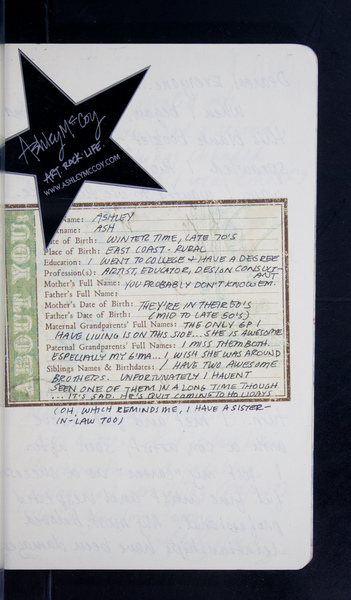 Ashley McCoy
ART. ROCK. LIFE.
WWW.ASHLEYMCCOY.COM
ABOUT YOU:
Name: ASHLEY
name: ASH
Date of Birth: WINTER TIME, LATE 70'S
Place of Birth: EAST COAST - RURAL
Education: I WENT TO COLLEGE + HAVE A DEGREE
Profession(s): ARTIST, EDUCATOR, DESIGN CONSULT-
ANT
Mother's Full Name: YOU PROBABLY DON'T KNOW EM.
Father's Full Name:
Mother's Date of Birth: THEY'RE IN THEIR 50'S
Father's Date of Birth: (MID TO LATE 60'S)
Maternal Grandparents' Full Names: THE ONLY GP I
HAVE LIVING IS ON THIS SIDE... SHE IS AWESOME
Paternal Grandparents' Full Names: I MISS THEM BOTH.
ESPECIALLY MY G'MA... I WISH SHE WAS AROUND
Siblings Names & Birthdates: I HAVE TWO AWESOME
BROTHERS. UNFORTUNATELY I HAVENT
SEEN ONE OF THEM IN A LONG TIME THOUGH
... IT'S SAD. HE'S QUIT COMING TO HOLIDAYS
(OH, WHICH REMINDS ME, I HAVE A SISTER-
IN-LAW TOO)